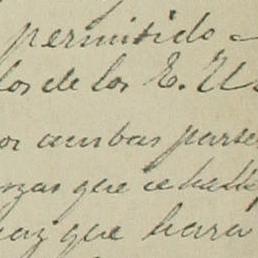 permitido a
los de los E. U.
or ambas partes
nzas que se halle
paz que hara